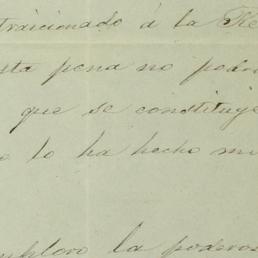 traicionado á la Re
sta pena no podr
que se constituye
o lo ha hecho mi
mploro la poderos